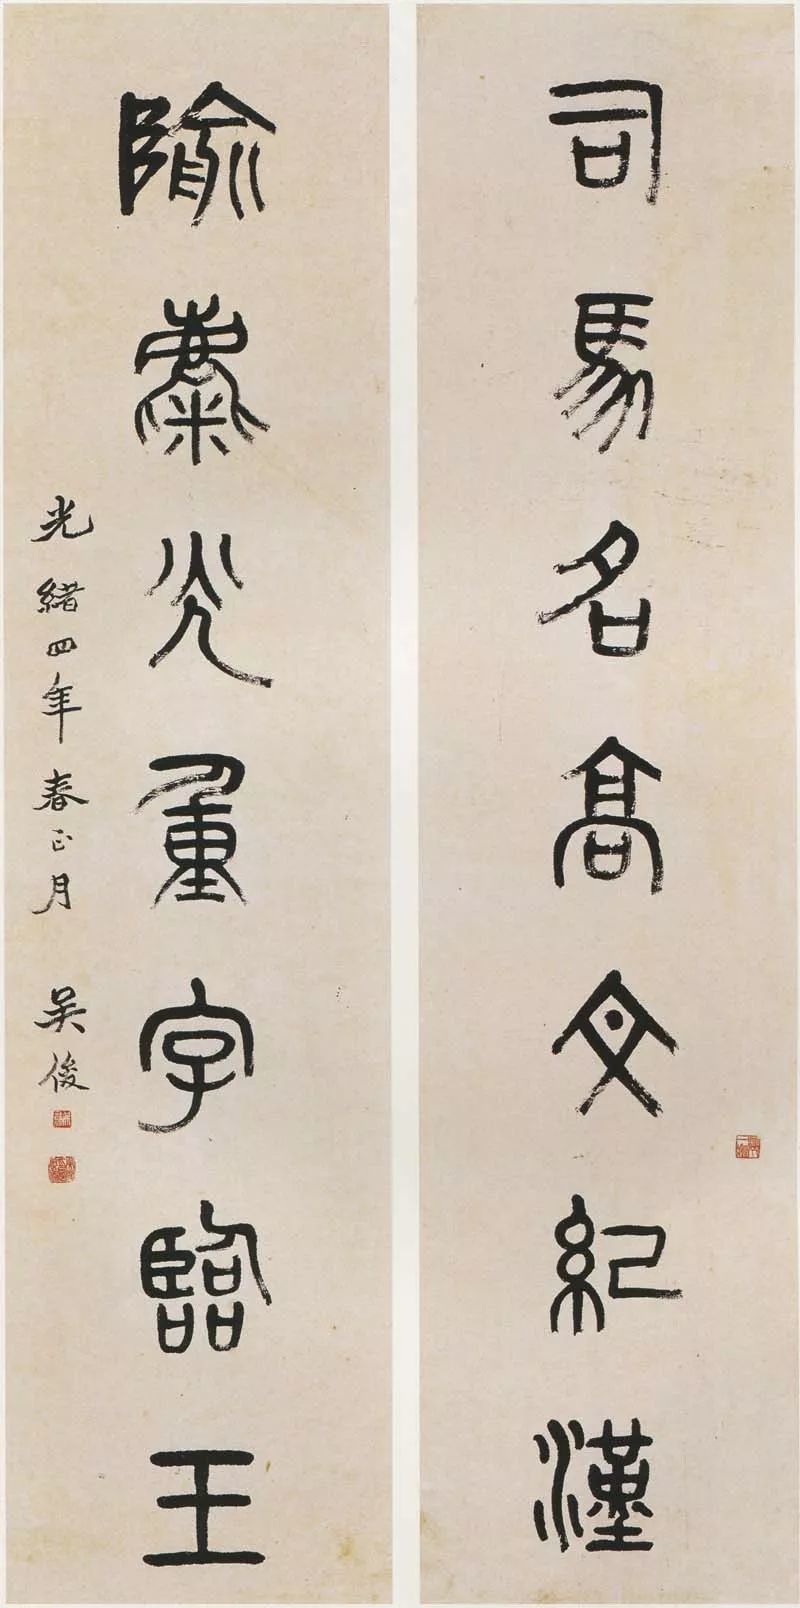 司馬名高文紀漢
隃麋光重字臨王
光緒四年春正月 吴俊